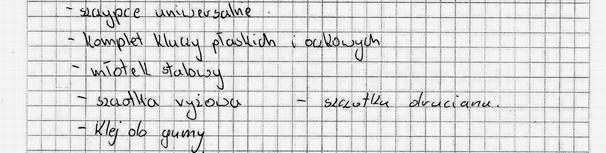 - szczypce uniwersalne.
- komplet kluczy płaskich i oczkowych
- młotek stalowy
- szczotka ryżowa - szczotka druciana.
- klej do gumy